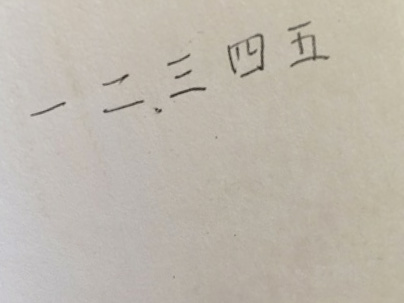 一 二 三 四 五